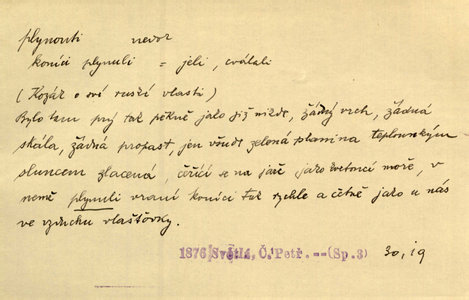 plynouti nedok
koníci plynuli = jeli, cválali
(Kozár o své ruské vlasti)
Bylo tam prý tak pěkně jako již nikde, žádný vrch, žádná
skála, žádná propast, jen všude zelená planina teplounkým
sluncem zlacená, čeřící se na jaře jako kvetoucí moře, v
němž plynuli vraní koníci tak rychle a četně jako u nás
ve vzduchu vlaštovky.
1876 Světlá, Č. Petř. -- (Sp. 3) 30, 19